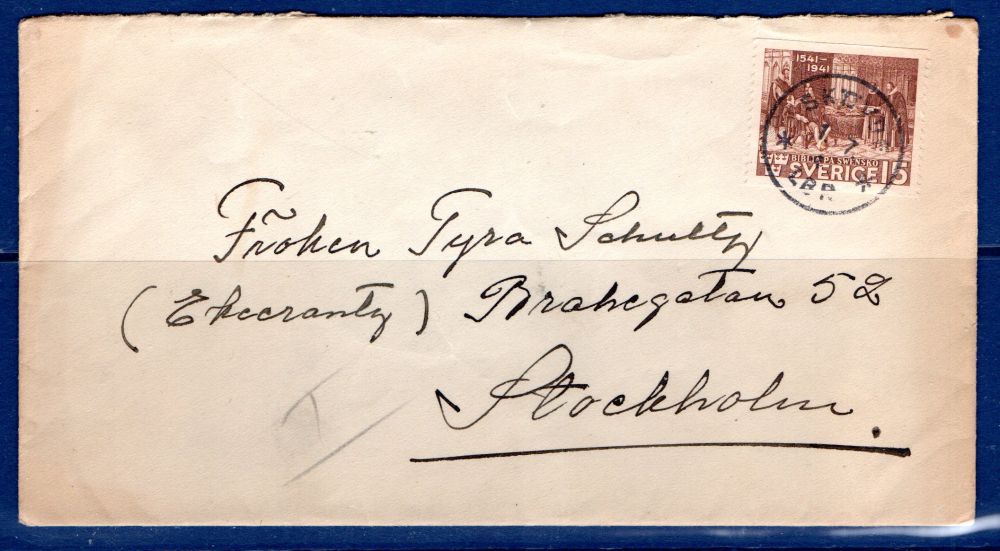 1541–
1941
BIBELN PÅ SWENSKO
SVERIGE 15
7 7
LBR
Fröken Tyra Schultz
(Ekecrantz) Brahegatan 52
Stockholm.